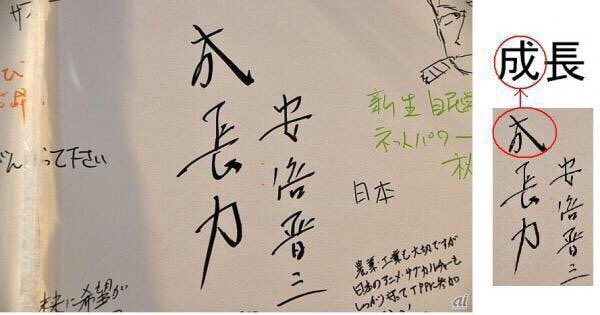 って下さい
成長力
安倍晋三
新生自民
ネットパワー
日本
農業、工業も大切ですが
日本のアニメ・サブカルチャーも
しっかり守ってTPPに参加
未来に希望が
ai
成長
成長力
安倍晋三